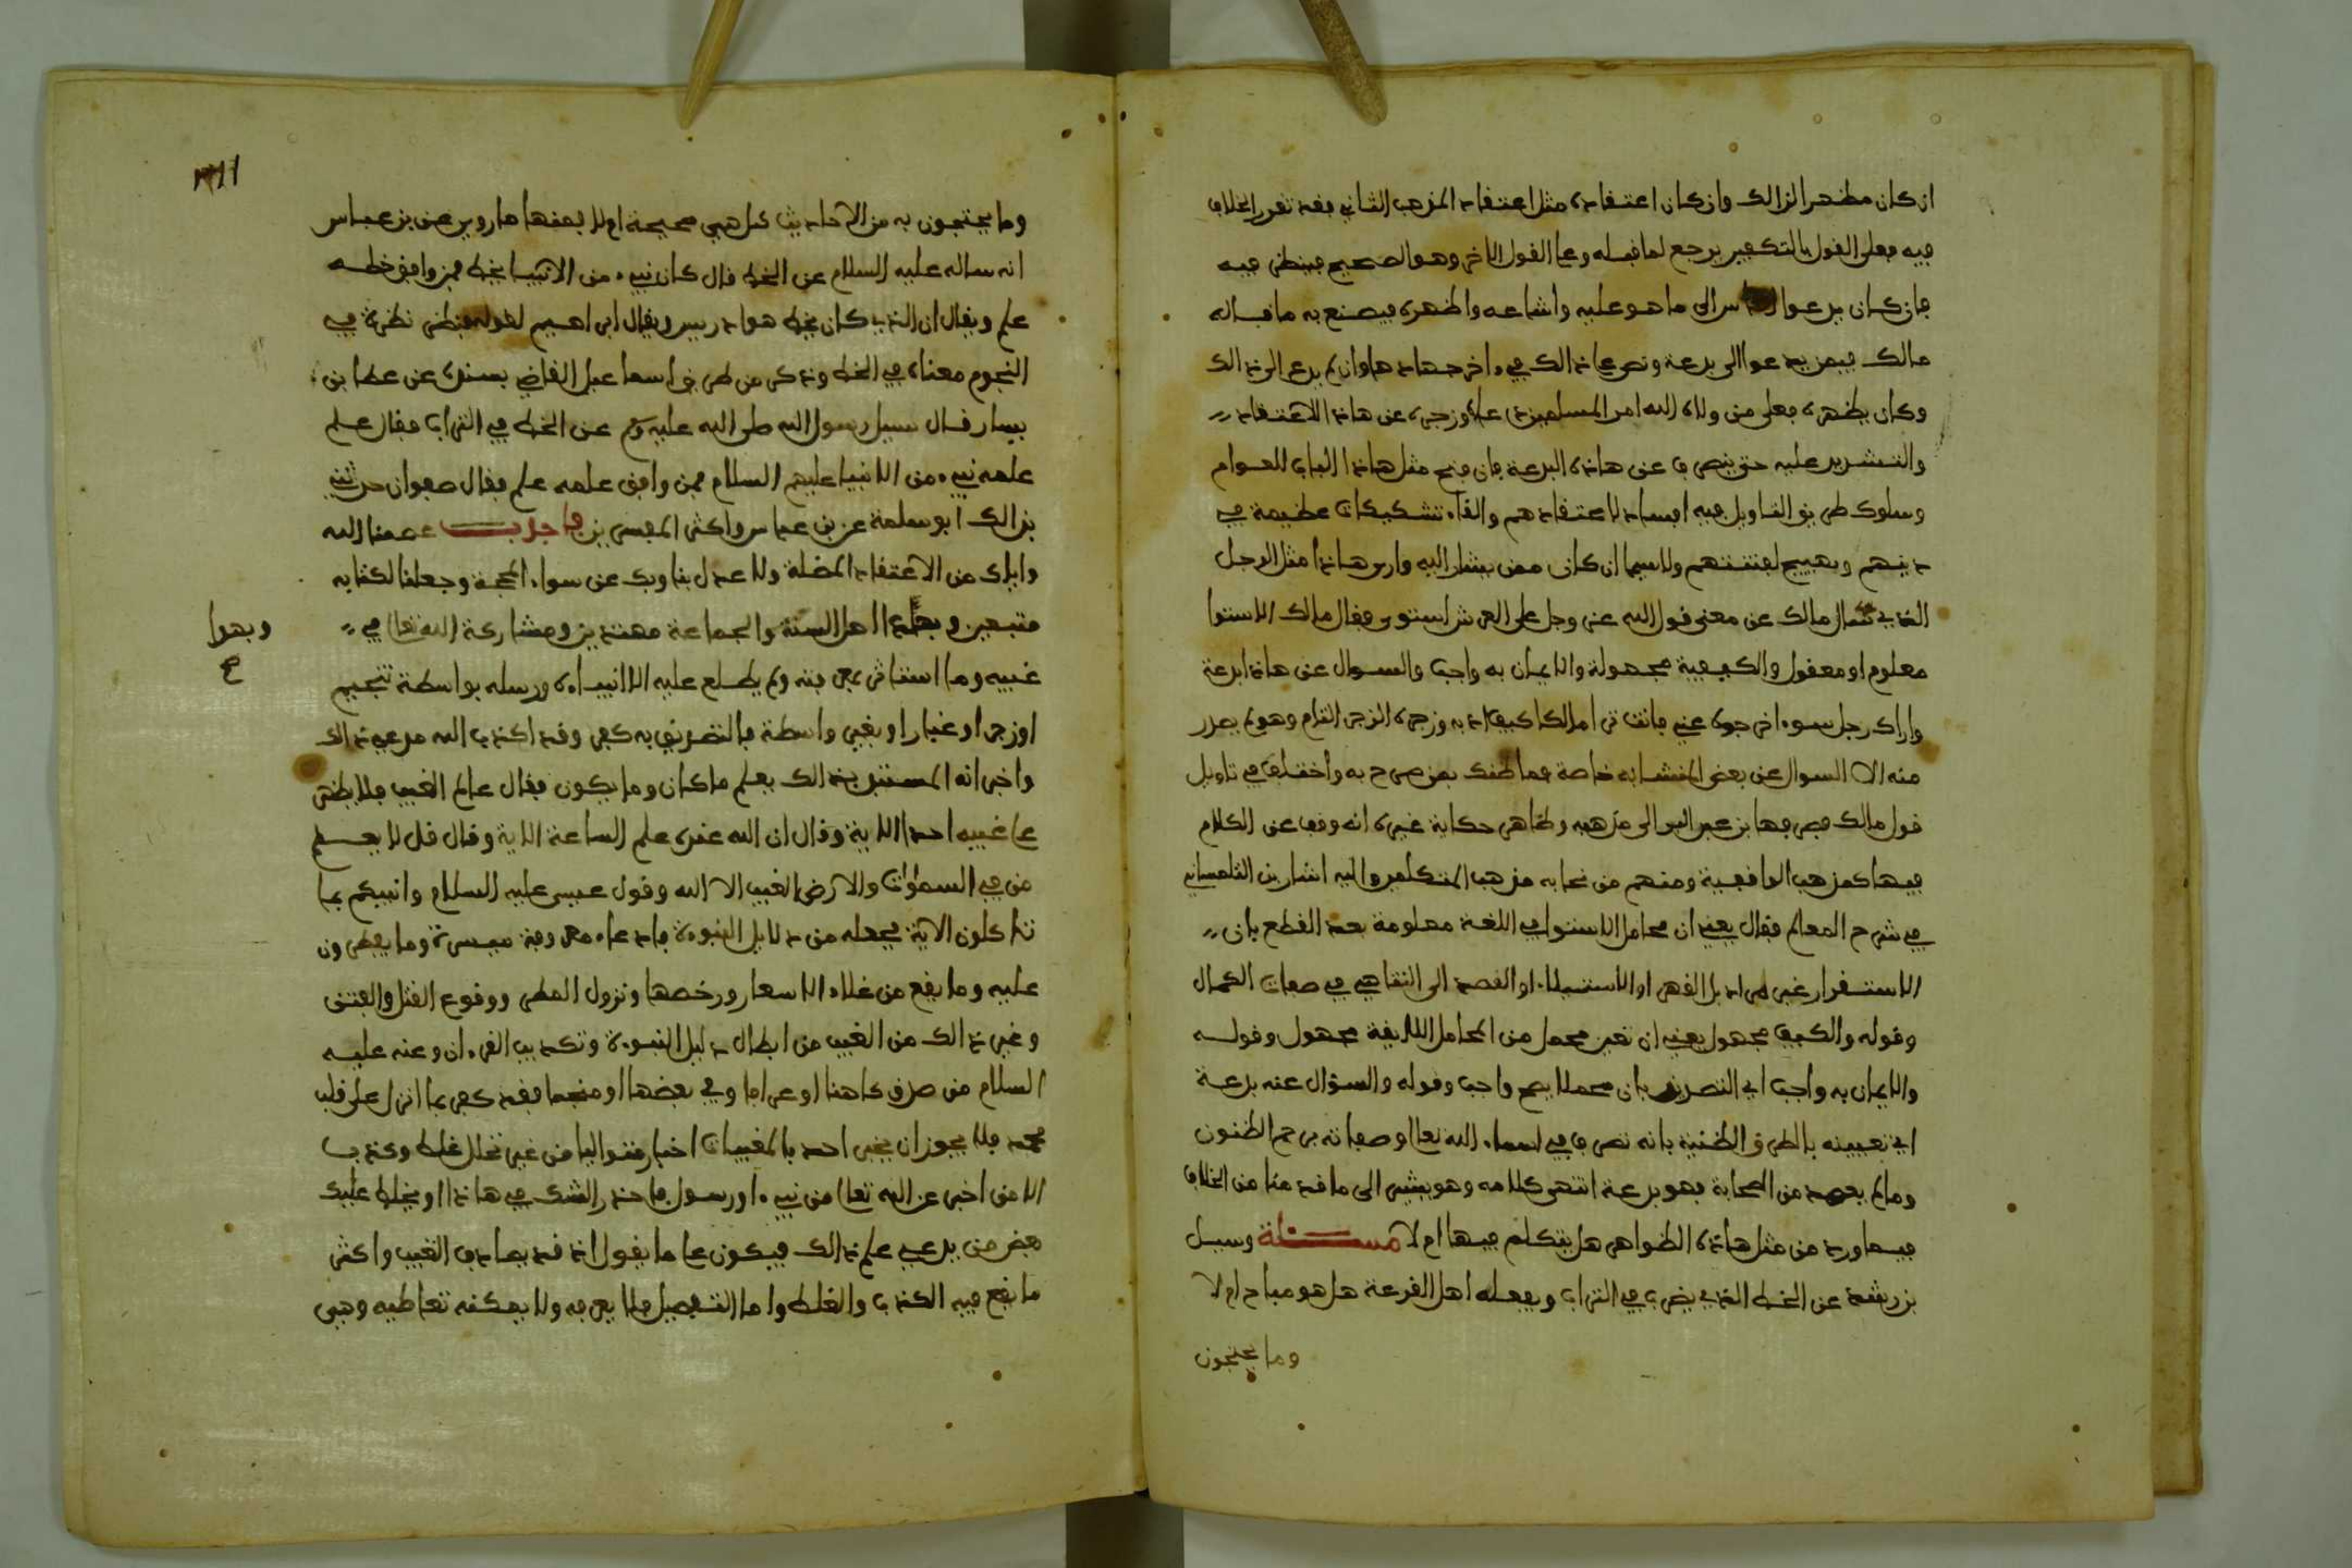 ان كان مظهرا لذالك وان كان اعتقاده مثل اعتقاد المذهب الثاني فقد تقرر الخلاف
فيه فعلى القول بالتكفير يرجع لما قبله وعلى القول الاخر وهو الصحيح فينظر فيه
فان كان يدعوا الناس الى ما هو عليه واشاعه واظهره فيصنع به ما قاله
مالك فيمن يدعوا الى بدعة ونص على ذالك في ءاخر جهادها وان لم يدع الى ذالك
وكان يظهره فعلى من ولاه الله امر المسلمين ردعه وزجره عن هاذا الاعتقاد
والتشديد عليه حتى ينصرف عن هاذه البدعة فان فتح مثل هاذا الباب للعوام
وسلوك طريق التاويل فيه افساد لاعتقادهم والقاء تشكيكات عظيمة في
دينهم وتهييج لفتنتهم ولا سيما ان كان ممن يشار اليه وارى هاذا مثل الرجل
الذي سال مالك عن معنى قول الله عز وجل على العرش استوى فقال مالك الاستوا
معلوم او معقول والكيفية مجهولة والايمان به واجب والسوال عن هاذا بدعة
واراك رجل سوء اخرجوه عني فانت ترا مالكا كيف ادبه وزجره الزجر التام وهو لم يصدر
منه الا السوال عن بعض المتشابه خاصة فما ظنك بمن صرح به واختلف في تاويل
قول مالك فصرفها بن عبد البر الى مذهبه وظاهر حكاية غيره انه وقف عن الكلام
فيها كمذهب الواقفية ومنهم من نحا به مذهب المتكلمين واليه اشار بن التلمساني
في شرح المعالم فقال يعني ان محامل الاستوا في اللغة معلومة بعد القطع بان
الاستقرار غير مراد بل القهر او الاستيلاء او القصد الى التناهي في صفات الكمال
وقوله والكيف مجهول يعني ان تعين محمل من المحامل اللايقة مجهول وقوله
والايمان به واجب اي التصديق بان محملا يصح واجب وقوله والسؤال عنه بدعة
اي تعيينه بالطرق الظنية بانه تصرف في اسماء الله تعالى وصفاته برجم الظنون
وما لم يعهد من الصحابة فهو بدعة انتهى كلامه وهو يشير الى ما قدمنا من الخلاف
فيما ورد من مثل هاذه الظواهر هل يتكلم فيها ام لا مسئلة وسيل
بن رشد عن الخط الذي يضرب في التراب ويفعله اهل القرعة هل هو مباح ام لا
وما يحتجون
وما يحتجون به من الاحاديث هل هي صحيحة ام لا فمنها ما روي عن بن عباس
انه ساله عليه السلام عن الخط قال كان نبيء من الانبيا يخط فمن وافق خطه
علم ويقال ان الذي كان يخط هو ادريس ويقال ابراهيم لقوله فنظر نظرة في
النجوم معناه في الخط وذكر من طريق اسماعيل القاضي بسنده عن عطا بن
يسار قال سيل رسول الله صلى الله عليه وسلم عن الخط في التراب فقال علم
علمه نبيء من الانبيا عليهم السلام فمن وافق علمه علم فقال صفوان حدثني
بذالك ابو سلمة عن بن عباس واكثر المفسرين فاجاب عصمنا الله
واياك من الاعتقاد المضلة ولا عدل بنا وبك عن سواء المحجة وجعلنا لكتابه
متبعين وبهدا اهل السنة والجماعة مهتدين ومشاركة الله تعالى في
وبهدا
صح
غيبه وما استاثر بمعرفته ولم يطلع عليه الا انبياءه ورسله بواسطة تنجيم
او زجر او غبار او بغير واسطة فالتصديق به كفر وقد اكذب الله مدعي ذالك
واخبر انه المستبد بذالك يعلم ما كان وما يكون فقال عالم الغيب فلا يظهر
على غيبه احدا الاية وقال ان الله عنده علم الساعة الاية وقال قل لا يعلم
من في السماوات والارض الغيب الا الله وقول عيسى عليه السلام وانبيكم بما
تاكلون الاية فجعله من دلايل النبوءة فادعاء معرفة ميسرة وما يفطرون
عليه وما يقع من غلاء الاسعار ورخصها ونزول المطر ووقوع القتل والفتن
وغير ذالك من الغيب من ابطال دليل النبوءة وتكذيب القرءان وعنه عليه
السلام من صدق كاهنا او عرافا وفي بعضها او منجما فقد كفر بما انزل على قلب
محمد فلا يجوز ان يخبر احد بالمغيبات اخبار متواليا من غير تخلل غلط وكذب
الا من اخبر عن الله تعالى من نبيء او رسول فاحذر الشك في هاذا او يخلط عليك
بعض من يدعي علم ذالك فيكون على ما يقول اذ قد يصادف الغيب واكثر
ما يقع فيه الكذب والغلط واما التفصيل فلا يعرفه ولا يمكنه تعاطيه وهي